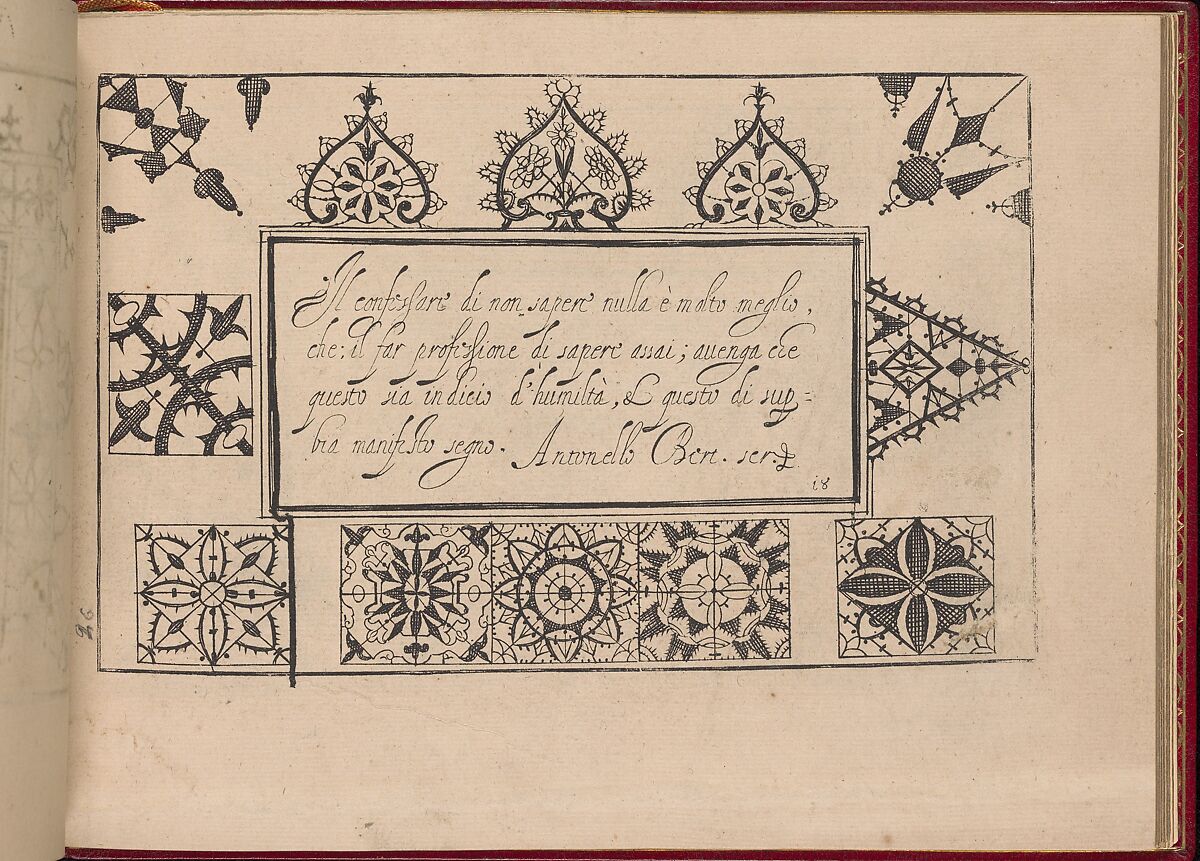 Il confessare di non sapere nulla è molto meglio,
che, il far professione di sapere assai; auenga che
questo sia indicio d'humiltà, & questo di sup=
bia manifesto segno. Antonello Bert. scr.
18
26